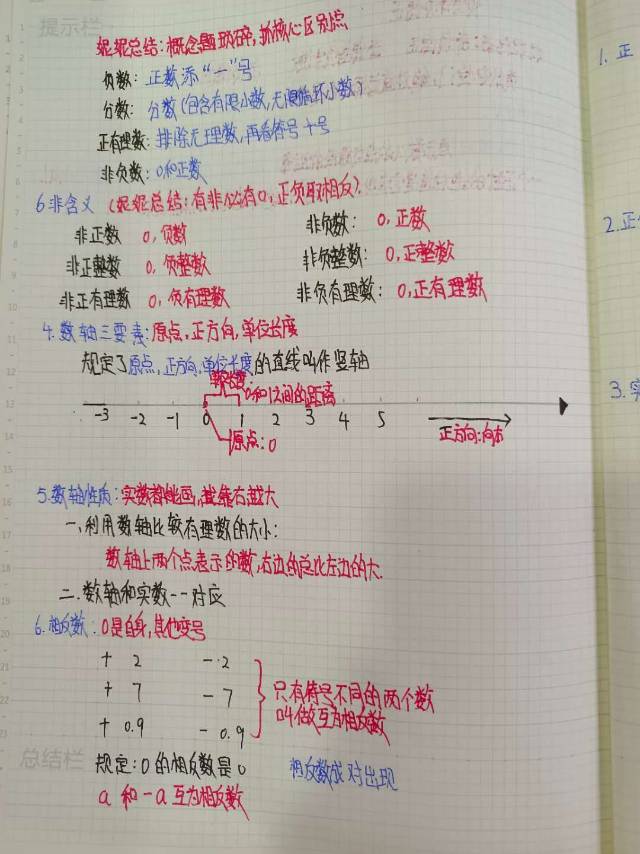 提示栏
妮妮总结:概念题琐碎,抓核心区别点
负数: 正数添“一”号
分数: 分数(包含有限小数,无限循环小数)
正有理数: 排除无理数,再看符号十号
非负数: 0和正数
6非含义 (妮妮总结:有非必有0,正负取相反).
非正数 0,负数 非负数: 0,正数
非正整数 0,负整数 非负整数: 0,正整数
非正有理数 0,负有理数 非负有理数: 0,正有理数
4.数轴三要素:原点,正方向,单位长度
规定了原点,正方向,单位长度的直线叫作竖轴
单位长度:
0和1之间的距离
-3 -2 -1 0 1 2 3 4 5
原点:0
正方向:向右
5.数轴性质:实数都能画,越靠右越大
一、利用数轴比较有理数的大小:
数轴上两个点表示的数,右边的总比左边的大.
二.数轴和实数一一对应
6.相反数:0是自身,其他变号
+ 2 - 2
+ 7 - 7
+ 0.9 - 0.9
只有符号不同的两个数
叫做互为相反数
规定:0的相反数是0 相反数成对出现
a 和 -a 互为相反数
总结栏
1. 正
2.正
3.实